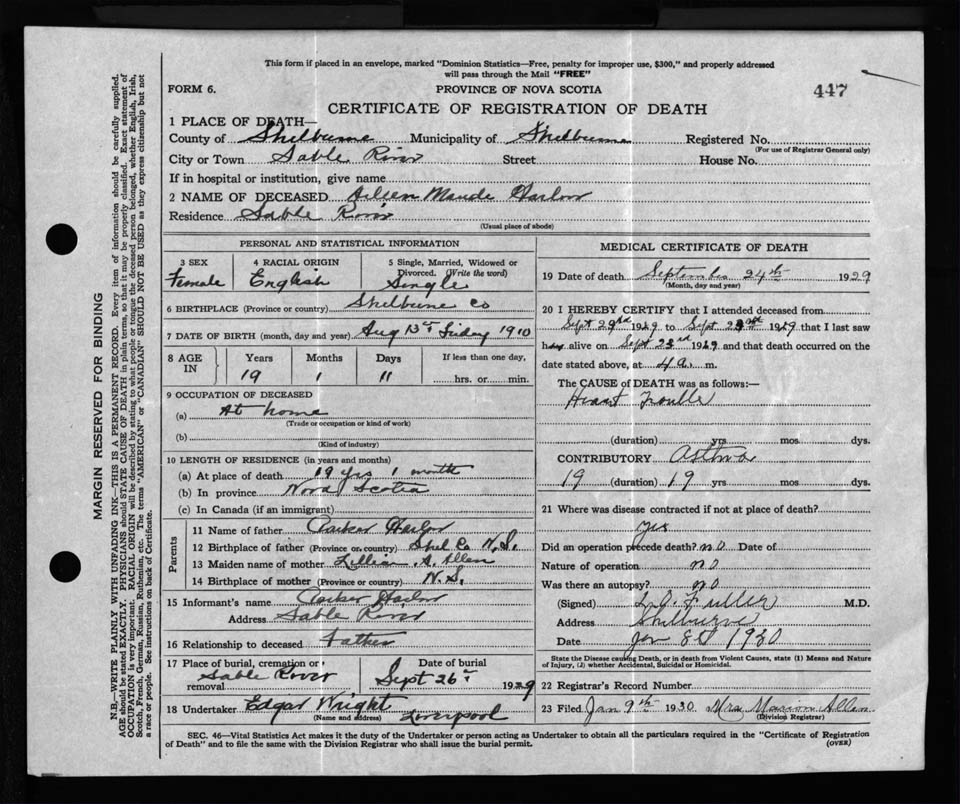 This form if placed in an envelope, marked "Dominion Statistics—Free, penalty for improper use, $300," and properly addressed
will pass through the Mail "FREE"
FORM 6. PROVINCE OF NOVA SCOTIA 447
CERTIFICATE OF REGISTRATION OF DEATH
1 PLACE OF DEATH—
County of Shelburne Municipality of Shelburne Registered No.
(For use of Registrar General only)
City or Town Sable River Street House No.
If in hospital or institution, give name
2 NAME OF DECEASED Aileen Maude Harlow
Residence Sable River
(Usual place of abode)
PERSONAL AND STATISTICAL INFORMATION
3 SEX 4 RACIAL ORIGIN 5 Single, Married, Widowed or
Divorced. (Write the word)
Female English Single
6 BIRTHPLACE (Province or country) Shelburne Co
7 DATE OF BIRTH (month, day and year) Aug 13 Friday 1910
8 AGE IN Years Months Days If less than one day,
19 1 11 hrs. or min.
9 OCCUPATION OF DECEASED
(a) At home
(Trade or occupation or kind of work)
(b)
(Kind of industry)
10 LENGTH OF RESIDENCE (in years and months)
(a) At place of death 19 yrs 1 month
(b) In province Nova Scotia
(c) In Canada (if an immigrant)
Parents
11 Name of father Parker Harlow
12 Birthplace of father (Province or country) Shel Co N.S.
13 Maiden name of mother Lillian A. Allen
14 Birthplace of mother (Province or country) N.S.
15 Informant's name Parker Harlow
Address Sable River
16 Relationship to deceased Father
17 Place of burial, cremation or Date of burial
removal Sable River Sept 26 1929
18 Undertaker Edgar Wright Liverpool
(Name and address)
MEDICAL CERTIFICATE OF DEATH
19 Date of death September 24th 1929
(Month, day and year)
20 I HEREBY CERTIFY that I attended deceased from
Sept 1929 to Sept 1929 that I last saw
h alive on Sept 1929 and that death occurred on the
date stated above, at 4 a. m.
The CAUSE of DEATH was as follows:—
Heart Trouble
(duration) yrs mos dys.
CONTRIBUTORY Asthma
19 (duration) 19 yrs mos dys.
21 Where was disease contracted if not at place of death?
yes
Did an operation precede death? no Date of
Nature of operation no
Was there an autopsy? no
(Signed) Fuller M.D.
Address Shelburne
Date Jan 8 1930
State the Disease causing Death, or in death from Violent Causes, state (1) Means and Nature
of Injury, (2) whether Accidental, Suicidal or Homicidal.
22 Registrar's Record Number
23 Filed Jan 9th 1930 Mrs Marion Allen
(Division Registrar)
SEC. 46—Vital Statistics Act makes it the duty of the Undertaker or person acting as Undertaker to obtain all the particulars required in the "Certificate of Registration
of Death" and to file the same with the Division Registrar who shall issue the burial permit. (OVER)
MARGIN RESERVED FOR BINDING
N.B.—WRITE PLAINLY WITH UNFADING INK—THIS IS A PERMANENT RECORD. Every item of information should be carefully supplied.
AGE should be stated EXACTLY. PHYSICIANS should STATE CAUSE OF DEATH in plain terms, so that it may be properly classified. Exact statement of
OCCUPATION is very important. RACIAL ORIGIN will be described by stating to what people or tongue the deceased person belonged, whether English, Irish,
Scotch, French, German, Russian, Ruthenian, etc. The terms "AMERICAN" or "CANADIAN" SHOULD NOT BE USED as they express citizenship but not
a race or people. See instructions on back of Certificate.